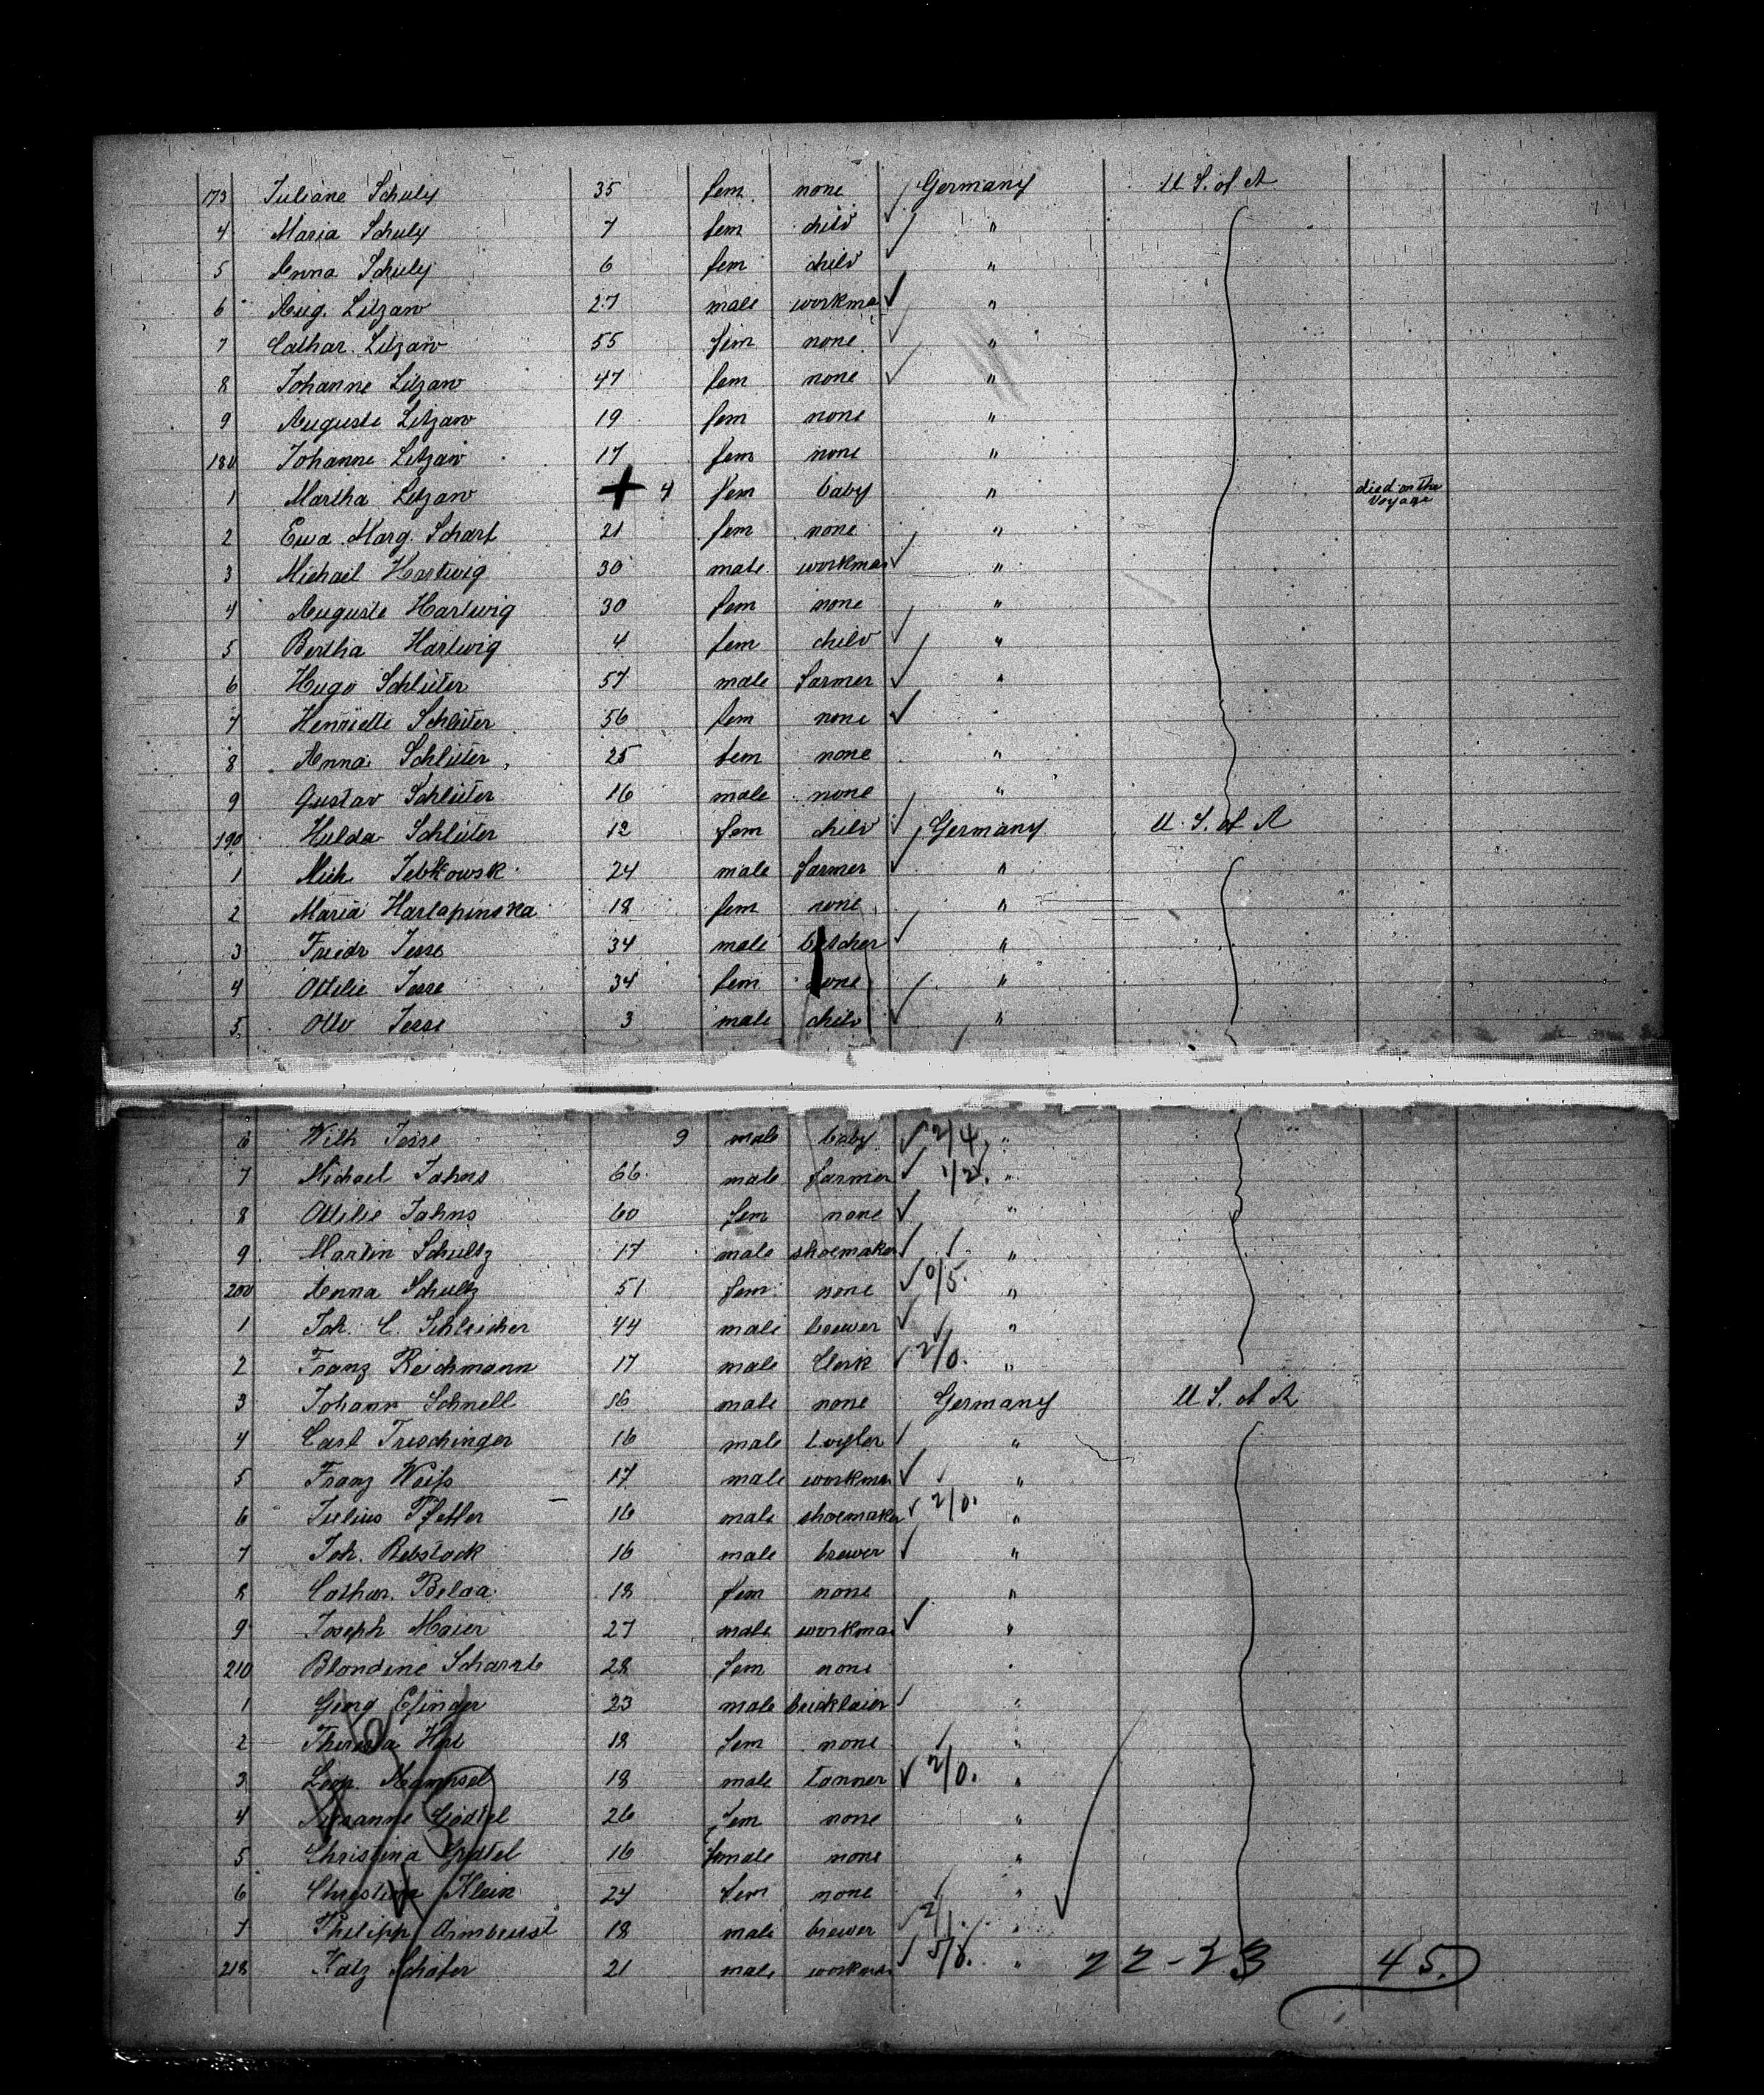 173 Juliane Schulz 35 fem. none Germany U. S. of A
4 Maria Schulz 7 fem child "
5 Anna Schulz 6 fem child "
6 Aug. Litzaw 27 male workma "
7 Cathar. Litzaw 55 fem none "
8 Johanne Litzaw 47 fem none "
9 Auguste Litzaw 19 fem none "
180 Johanne Litzaw 17 fem none "
1 Martha Litzaw + 4 fem baby " died on the voyage
2 Ewa Marg. Scharf 21 fem none "
3 Michael Hartwig 30 male workman "
4 Auguste Hartwig 30 fem none "
5 Bertha Hartwig 4 fem child "
6 Hugo Schlüter 57 male farmer "
7 Henriette Schlüter 56 fem none "
8 Anna Schlüter 25 fem none "
9 Gustav Schlüter 16 male none "
190 Hulda Schlüter 12 fem child Germany U. S. of A
1 Mich. 24 male farmer "
2 Maria Harlapinska 18 fem none "
3 Friedr Jesse 34 male butcher "
4 Ottilie Jesse 34 fem none "
5 Otto Jesse 3 male child "
6 Wilh Jesse 9 male baby 2/4. "
7 Michael Jahns 66 male farmer 1/2. "
8 Ottilie Jahns 60 fem none "
9 Martin Schultz 17 male shoemaker "
200 Anna Schultz 51 fem none 0/5. "
1 Joh. C. Schleicher 44 male brewer "
2 Franz Reichmann 17 male Clerk 2/0. "
3 Johann Schnell 16 male none Germany U. S. of A
4 Carl Treschinger 16 male "
5 Franz Weiß 17 male workman "
6 Julius Pfeffer 16 male shoemaker 2/0. "
7 Joh. Rebstock 16 male brewer "
8 Cathar. Belaa 18 fem none "
9 Joseph Maier 27 male workma "
210 Blondine 28 fem none "
1 Georg Efinger 23 male bricklaier "
2 Theresia 18 fem none "
3 Leop. 18 male tanner 2/0. "
4 Susanne Godtel 26 fem none "
5 Christina Godtel 16 female none "
6 Christina Klein 24 fem none "
7 Philipp Armbrust 18 male brewer 2/1. "
218 Schäfer 21 male workman 5/0. " 22-23 45.